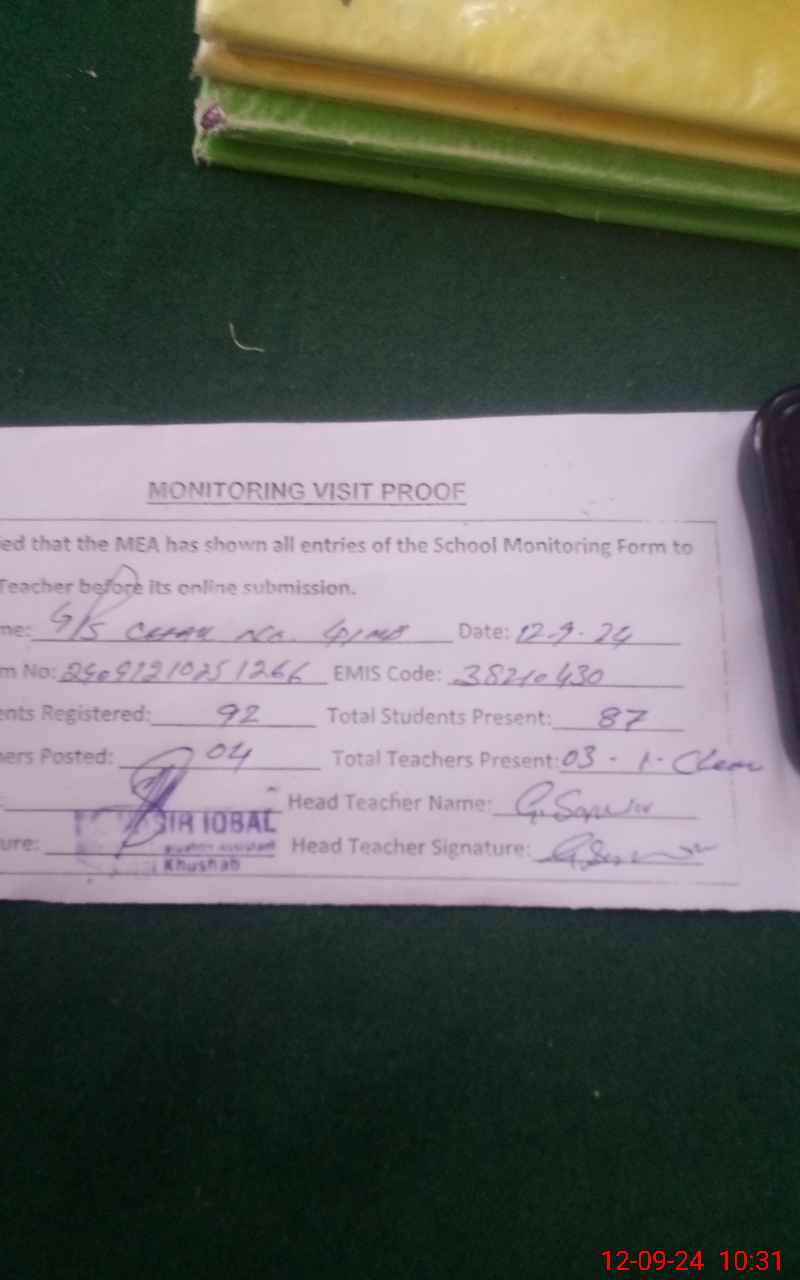 MONITORING VISIT PROOF
ed that the MEA has shown all entries of the School Monitoring Form to
Teacher before its online submission.
me: G/S Chak No. Date: 12-9-24
m No: EMIS Code: 38210430
ents Registered: 92 Total Students Present: 87
ers Posted: 04 Total Teachers Present: 03 - 1.
Head Teacher Name:
SIR IQBAL
ure: Head Teacher Signature:
Khushab
12-09-24 10:31